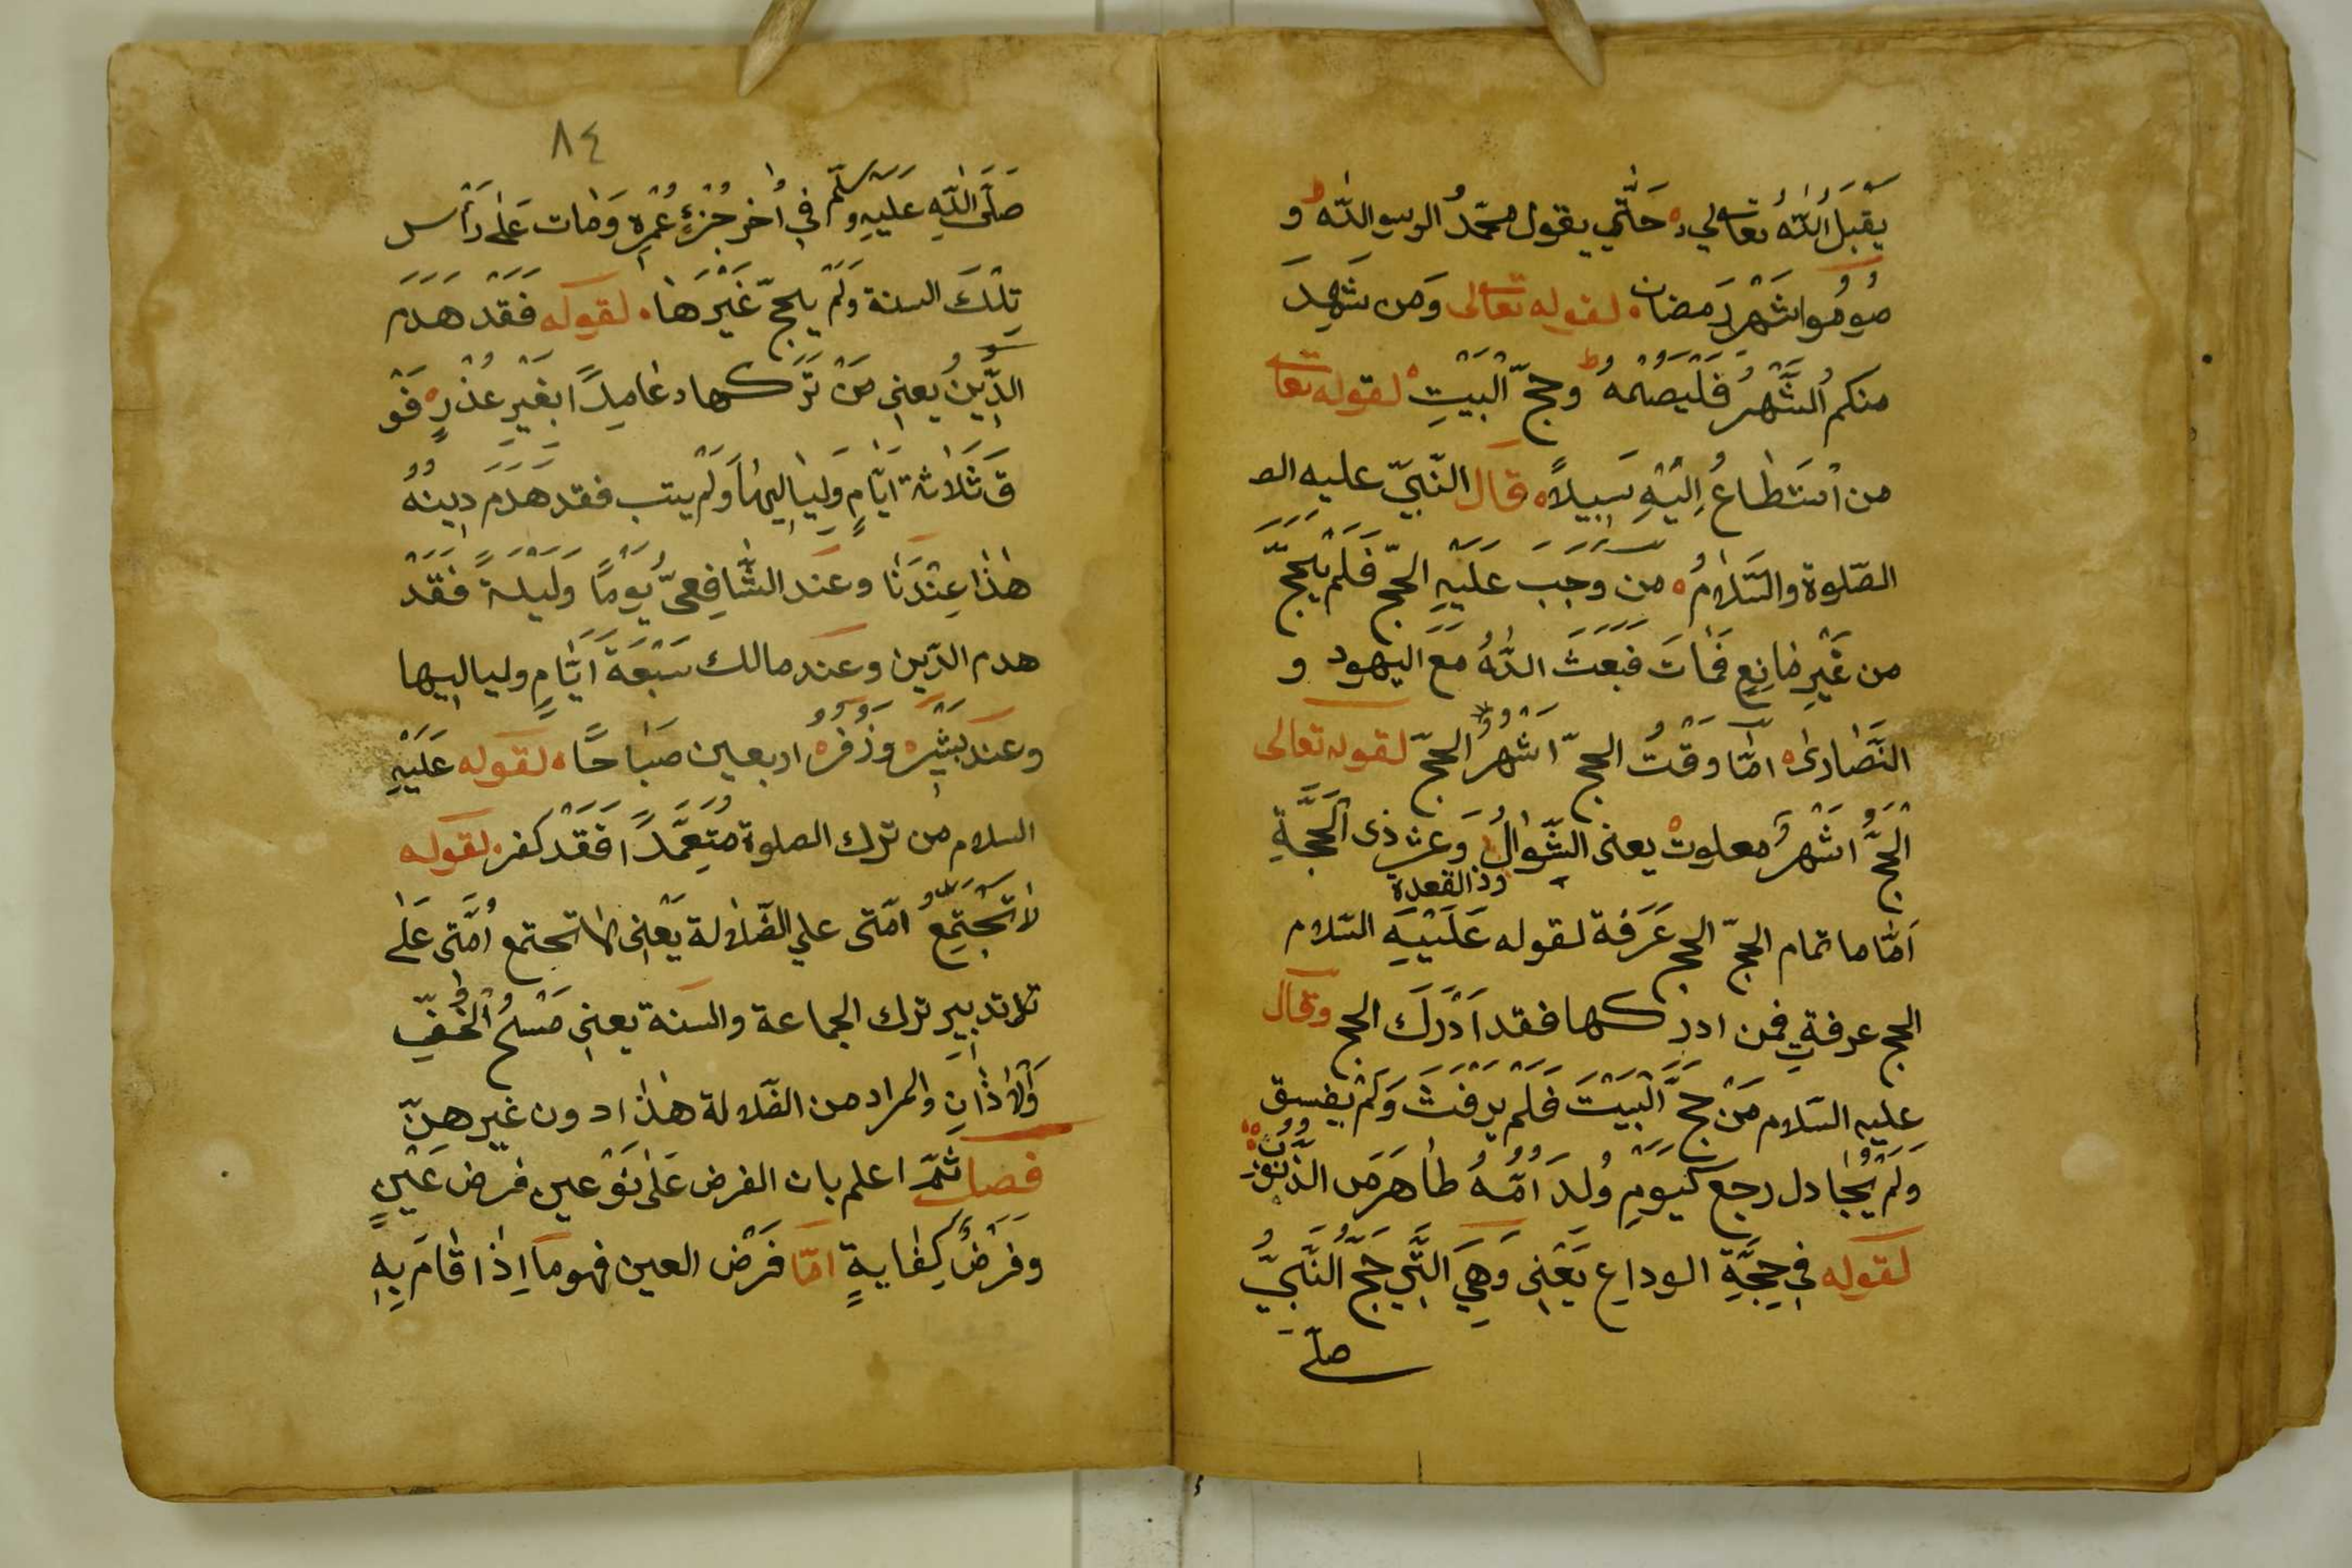 يَقْبَلُ اللّٰهُ تعالي حَتّٰي يقول محمّدُ الرسو اللّٰه و
صُومُوا شَهْرَ رَمضان لقوله تعالى وَمن شَهِدَ
منكم الشَّهْرُ فَلْيَصُمْهُ وحجّ الْبَيْتِ لقوله تعا
من اسْتَطاعُ اِلَيْهِ سَبِيلاً قال النّبيّ عليه الص
الصّلوة والسّلامُ من وجَبَ عَلَيْهِ الحجّ فَلَمْ يَحجّ
من غَيْرِ مانِعٍ فَمَاتَ فبعث اللّٰهُ مَعَ اليَهود و
النَّصَارىٰ امّا وَقْتُ الحجّ اشْهُرُ الحجّ لقوله تعالى
اَلْحَجُّ اشْهُرُ معلوت يعنى الشّوالُ وَعشر ذى الْحَجَّةِ
وذ القعدة
اَمَّا ما تمام الحجّ الحج عَرَفة لقوله عَلَيْيهِ السّلام
الحج عرفةٍ فمن ادركها فقد اَدْرَكَ الحج وقال
عليه السّلام مَنْ حجَّ الْبَيْتَ فَلَمْ يَرْفَثْ وَلَمْ يفسق
وَلَمْ يُجَادل رجع كَيَومِ وُلدَ اُمّهُ طٰاهر مَن الذّنُوبُ
لقوله فِي حِجَّةِ الوداع يَعْنِى وَهِيَ الَّتِي حَجَّ النَّبِيُّ
صلّى
٨٤
صَلَّى اللّٰهِ عَلَيْهِ وسَلّم فِي اٰخر جُزْءِ عُمْرِهِ وَمٰات عَلٰى رَأْس
تِلْكَ السنة وَلَمْ يحجّ غَيْرَهَا لقوله فَقَدْ هَدَمَ
الدِّينُ يعني مَنْ تَرَكها عَامِداً بِغَيْرِ عُذْرٍ فَوْ
قَ ثَلَاثة اَيَّامٍ وَلَيَالِيهَا وَلَمْ يتب فقد هَدَمَ دِينهُ
هٰذَا عِنْدَنٰا وعند الشَّافِعىّ يَوْمًا وَلَيْلَةً فَقَدْ
هدم الدّين وعند مالك سَبْعَةَ اَيَّامٍ ولياليها
وعند بَشِيْرِ وَزُفَرُ اربعين صَبَاحًا لقوله عَلَيْهِ
السلام من ترك الصلوة مُتَعَمِّداً فَقَدْ كفر لقوله
لَا تَجْتَمِعُ امّتى علي الضّلالة يَعْنِى لا تجتمع اُمَّتى عَلٰى
ترك تدبير ترك الجماعة والسنة يعني مَسْحُ الْخُفِّ
وَالْاَذَانِ والمراد من الضّلالة هٰذا دون غير هِنّ
فصل ثمّ اعلم بان الفرض عَلٰى نَوْعين فرض عَيْنٍ
وفَرْضُ كِفَايةٍ امّا فَرْض العين فهو مَا اِذَا قَامَ بِهِ